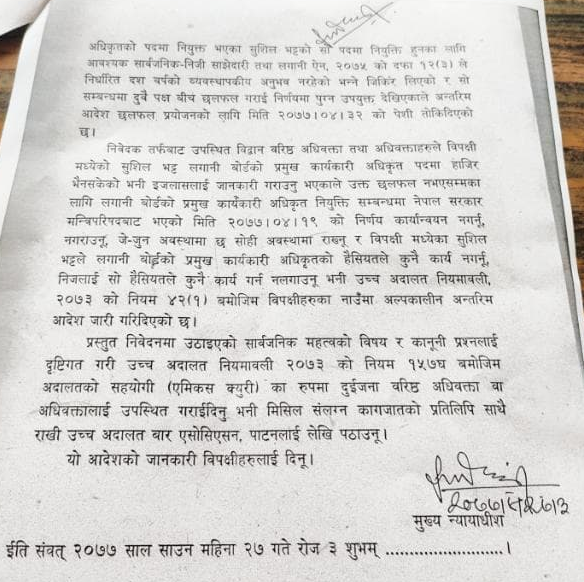 अधिकृतको पदमा नियुक्त भएका सुशिल भट्टको सो पदमा नियुक्ति हुनका लागि
आवश्यक सार्वजनिक-निजी साझेदारी तथा लगानी ऐन, २०७५ को दफा १२(३) ले
निर्धारित दश बर्षको व्यवस्थापकीय अनुभव नरहेको भन्ने जिकिर लिएको र सो
सम्बन्धमा दुबै पक्ष बीच छलफल गराई निर्णयमा पुग्न उपयुक्त देखिएकाले अन्तरिम
आदेश छलफल प्रयोजनको लागि मिति २०७७।०४।३२ को पेशी तोकिदिएको
छ।
निवेदक तर्फबाट उपस्थित विद्वान वरिष्ठ अधिवक्ता तथा अधिवक्ताहरुले विपक्षी
मध्येको सुशिल भट्ट लगानी बोर्डको प्रमुख कार्यकारी अधिकृत पदमा हाजिर
भैनसकेको भनी इजलासलाई जानकारी गराउनु भएकाले उक्त छलफल नभएसम्मका
लागि लगानी बोर्डको प्रमुख कार्यकारी अधिकृत नियुक्ति सम्बन्धमा नेपाल सरकार
मन्त्रिपरिषदबाट भएको मिति २०७७।०४।१९ को निर्णय कार्यान्वयन नगर्नु,
नगराउनू, जे-जुन अवस्थामा छ सोही अवस्थामा राख्नू र विपक्षी मध्येका सुशिल
भट्टले लगानी बोर्डको प्रमुख कार्यकारी अधिकृतको हैसियतले कुनै कार्य नगर्नू,
निजलाई सो हैसियतले कुनै कार्य गर्न नलगाउनू भनी उच्च अदालत नियमावली,
२०७३ को नियम ४२(१) बमोजिम विपक्षीहरुका नाउँमा अल्पकालीन अन्तरिम
आदेश जारी गरिदिएको छ।
प्रस्तुत निवेदनमा उठाइएको सार्वजनिक महत्वको विषय र कानूनी प्रश्नलाई
दृष्टिगत गरी उच्च अदालत नियमावली २०७३ को नियम १५७घ बमोजिम
अदालतको सहयोगी (एमिकस क्युरी) का रुपमा दुईजना वरिष्ठ अधिवक्ता वा
अधिवक्तालाई उपस्थित गराईदिनु भनी मिसिल संलग्न कागजातको प्रतिलिपि साथै
राखी उच्च अदालत बार एसोसिएसन, पाटनलाई लेखि पठाउनू।
यो आदेशको जानकारी विपक्षीहरुलाई दिनू।
मुख्य न्यायाधीश
ईति संवत् २०७७ साल साउन महिना २७ गते रोज ३ शुभम् ........................।